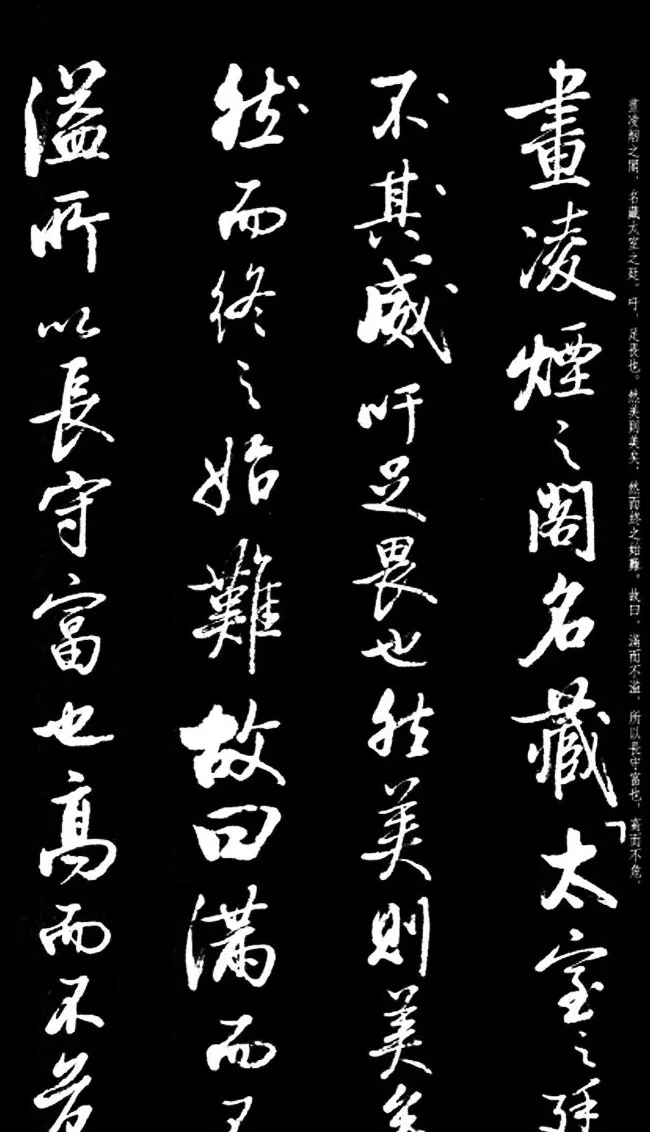 畫凌煙之閣，名藏太室之廷。吁，足畏也。然美則美矣，然而終之始難。故曰，滿而不溢，所以長守富也，高而不危，
畫凌煙之閣名藏太室之廷
不其威吁足畏也然美則美矣
然而終之始難故曰滿而不
溢所以長守富也高而不危